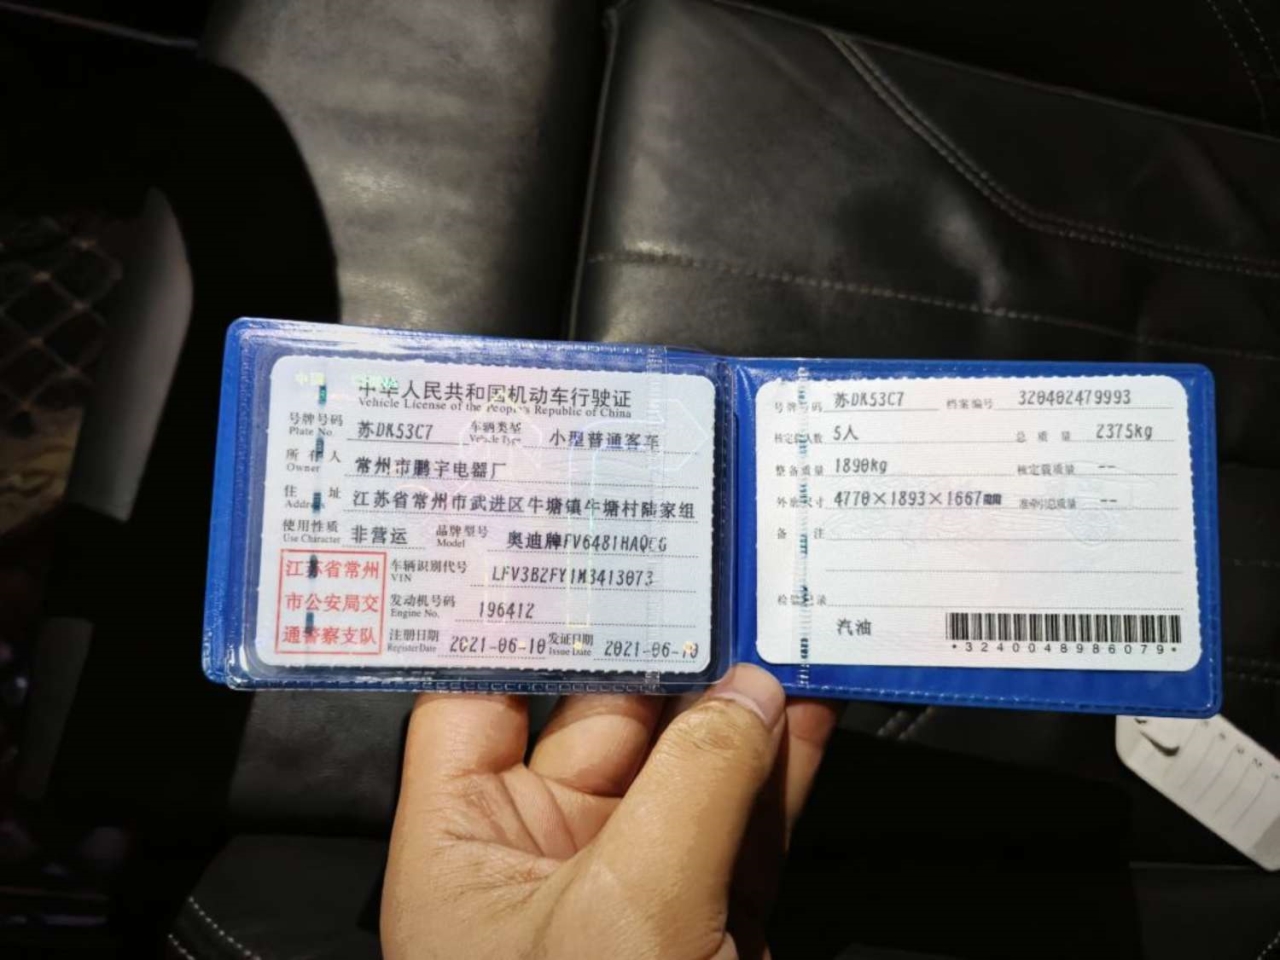 中华人民共和国机动车行驶证
Vehicle License of the People's Republic of China
号牌号码 苏DK53C7 车辆类型 小型普通客车
Plate No. Vehicle Type
所有人 常州市鹏宇电器厂
Owner
住址 江苏省常州市武进区牛塘镇牛塘村陆家组
Address
使用性质 非营运 品牌型号 奥迪牌FV6481HAQEG
Use Character Model
江苏省常州
市公安局交
通警察支队
车辆识别代号 LFV3B2FY1M3413073
VIN
发动机号码 196412
Engine No.
注册日期 2021-06-10 发证日期 2021-06-10
Register Date Issue Date
号牌号码 苏DK53C7 档案编号 320402479993
核定载人数 5人 总质量 2375kg
整备质量 1890kg 核定载质量 --
外廓尺寸 4770×1893×1667mm 准牵引总质量 --
备注
检验记录
汽油
*3240048986079*